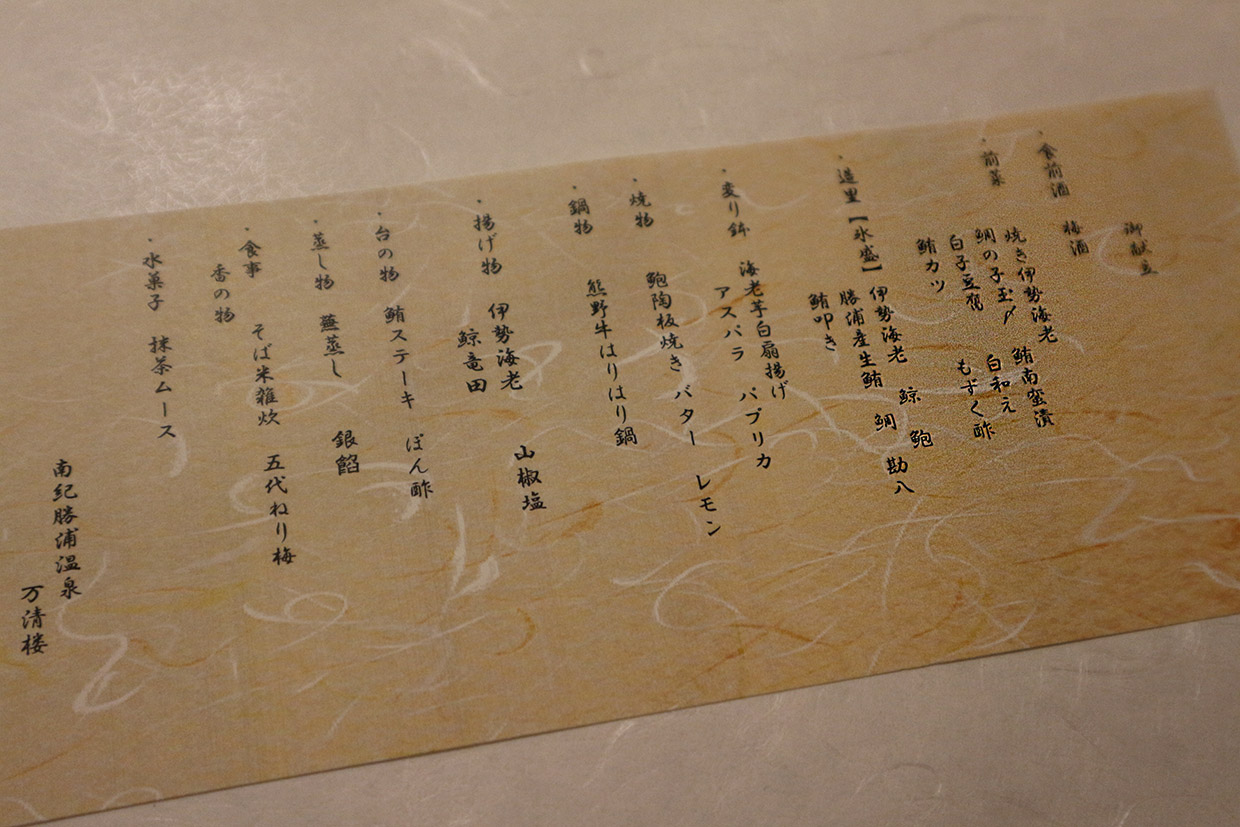 御献立
・食前酒　梅酒
・前菜　焼き伊勢海老　鮪南蛮漬
鯛の子玉〆　白和え
白子豆腐　もずく酢
鮪カツ
・造里【氷盛】伊勢海老　鯨　鮑
勝浦産生鮪　鯛　勘八
鮪叩き
・変り鉢　海老芋白扇揚げ
アスパラ　パプリカ
・焼物　鮑陶板焼き　バター　レモン
・鍋物　熊野牛はりはり鍋
・揚げ物　伊勢海老　山椒塩
鯨竜田
・台の物　鮪ステーキ　ぽん酢
・蒸し物　蕪蒸し　銀餡
・食事　そば米雑炊　五代ねり梅
香の物
・水菓子　抹茶ムース
南紀勝浦温泉
万清楼